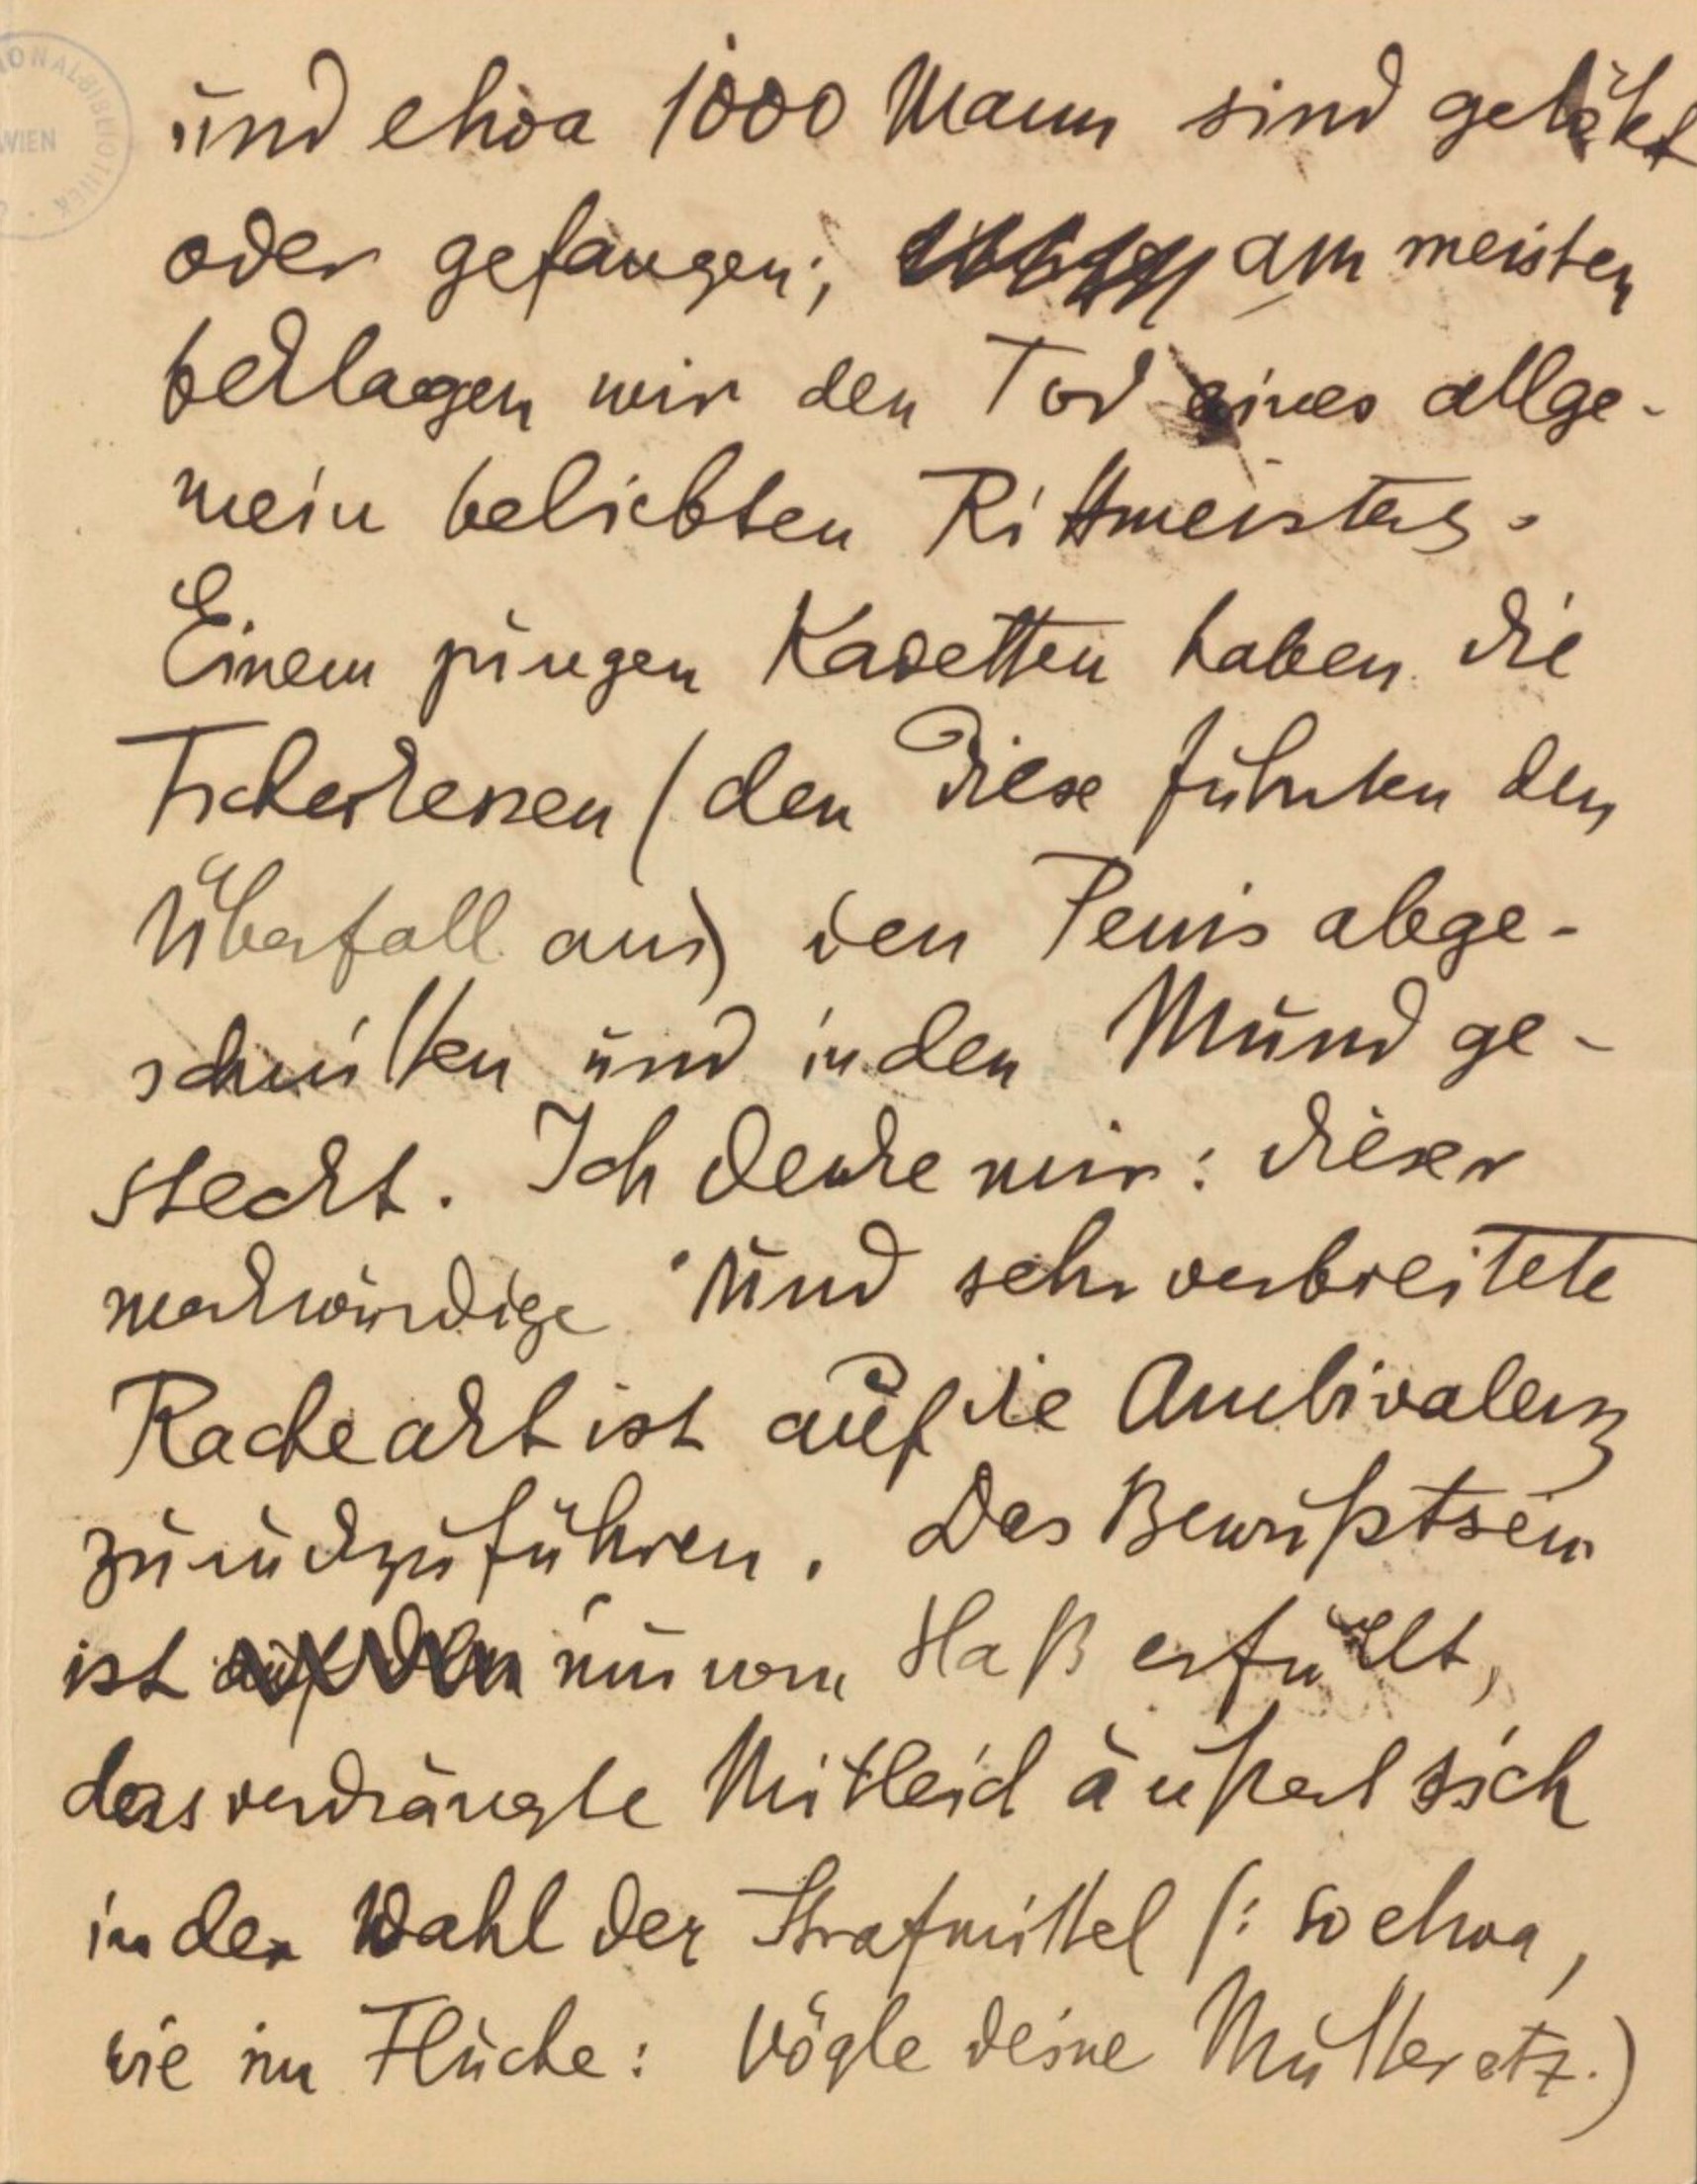 ONALBIBLIOTHEK
WIEN
und etwa 1000 Mann sind getötet
oder gefangen; am meisten
beklagen wir den Tod eines allge-
mein beliebten Rittmeisters.
Einem jungen Kadetten haben die
Tscherkessen (den diese führten den
Überfall aus) den Penis abge-
schnitten und in den Mund ge-
steckt. Ich denke mir: dieser
merkwürdige und sehr verbreitete
Racheakt ist auf die Ambivalenz
zurückzuführen. Das Bewußtsein
ist nur vom Haß erfüllt,
das verdrängte Mitleid äußert sich
in der Wahl der Strafmittel (: so etwa,
wie im Fluche: Vögle deine Mutter etz.)